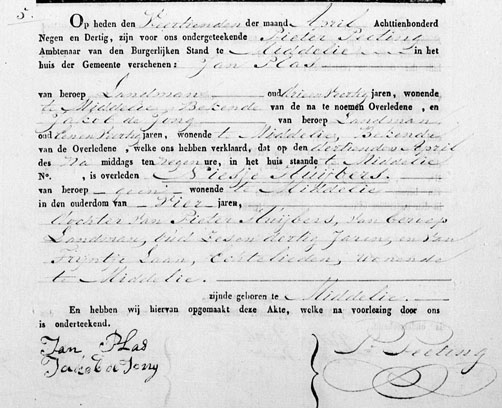 5.
Op heden den Veertienden der maand April Achttienhonderd
Negen en Dertig, zijn voor ons ondergeteekende Pieter Peeting
Ambtenaar van den Burgerlijken Stand te Middelie in het
huis der Gemeente verschenen: Jan Plas
van beroep Landman oud jaren, wonende
te Middelie, Bekende van de na te noemen Overledene, en
Jacob de Jong van beroep Landman
oud jaren, wonende te Middelie, Bekende
van de Overledene, welke ons hebben verklaard, dat op den dertienden April
des Na middags ten negen ure, in het huis staande te Middelie
No. , is overleden Niesje Huijbers.
van beroep geen wonende te Middelie
in den ouderdom van Vier jaren,
dochter van Pieter Huijbers, van beroep
Landman, oud Zes en dertig Jaren, en van
Trijntje Echtelieden, wonende
te Middelie.
zijnde geboren te Middelie.
En hebben wij hiervan opgemaakt deze Akte, welke na voorlezing door ons
is onderteekend.
Jan PLas
Jacob de Jong
P. Peeting